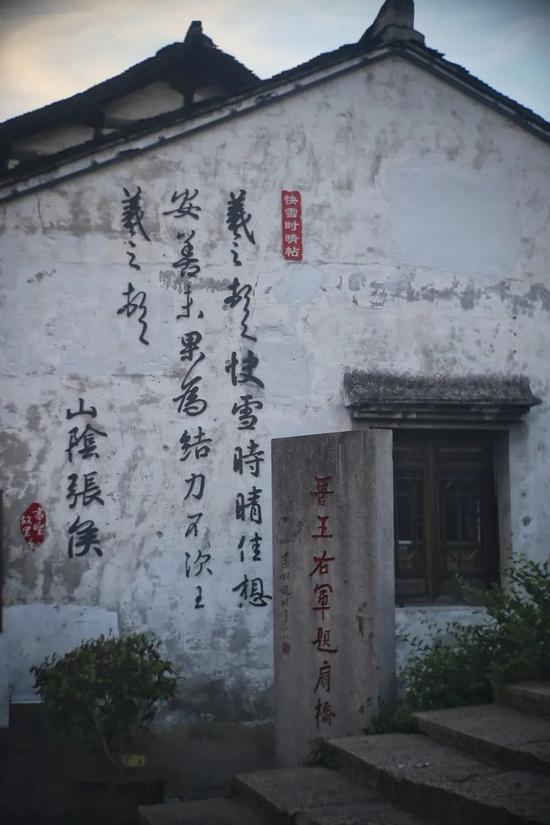 快雪时晴帖
羲之頓首快雪時晴佳想
安善未果為結力不次王
羲之頓首
山陰張侯
書聖
故里
晉王右軍題扇橋